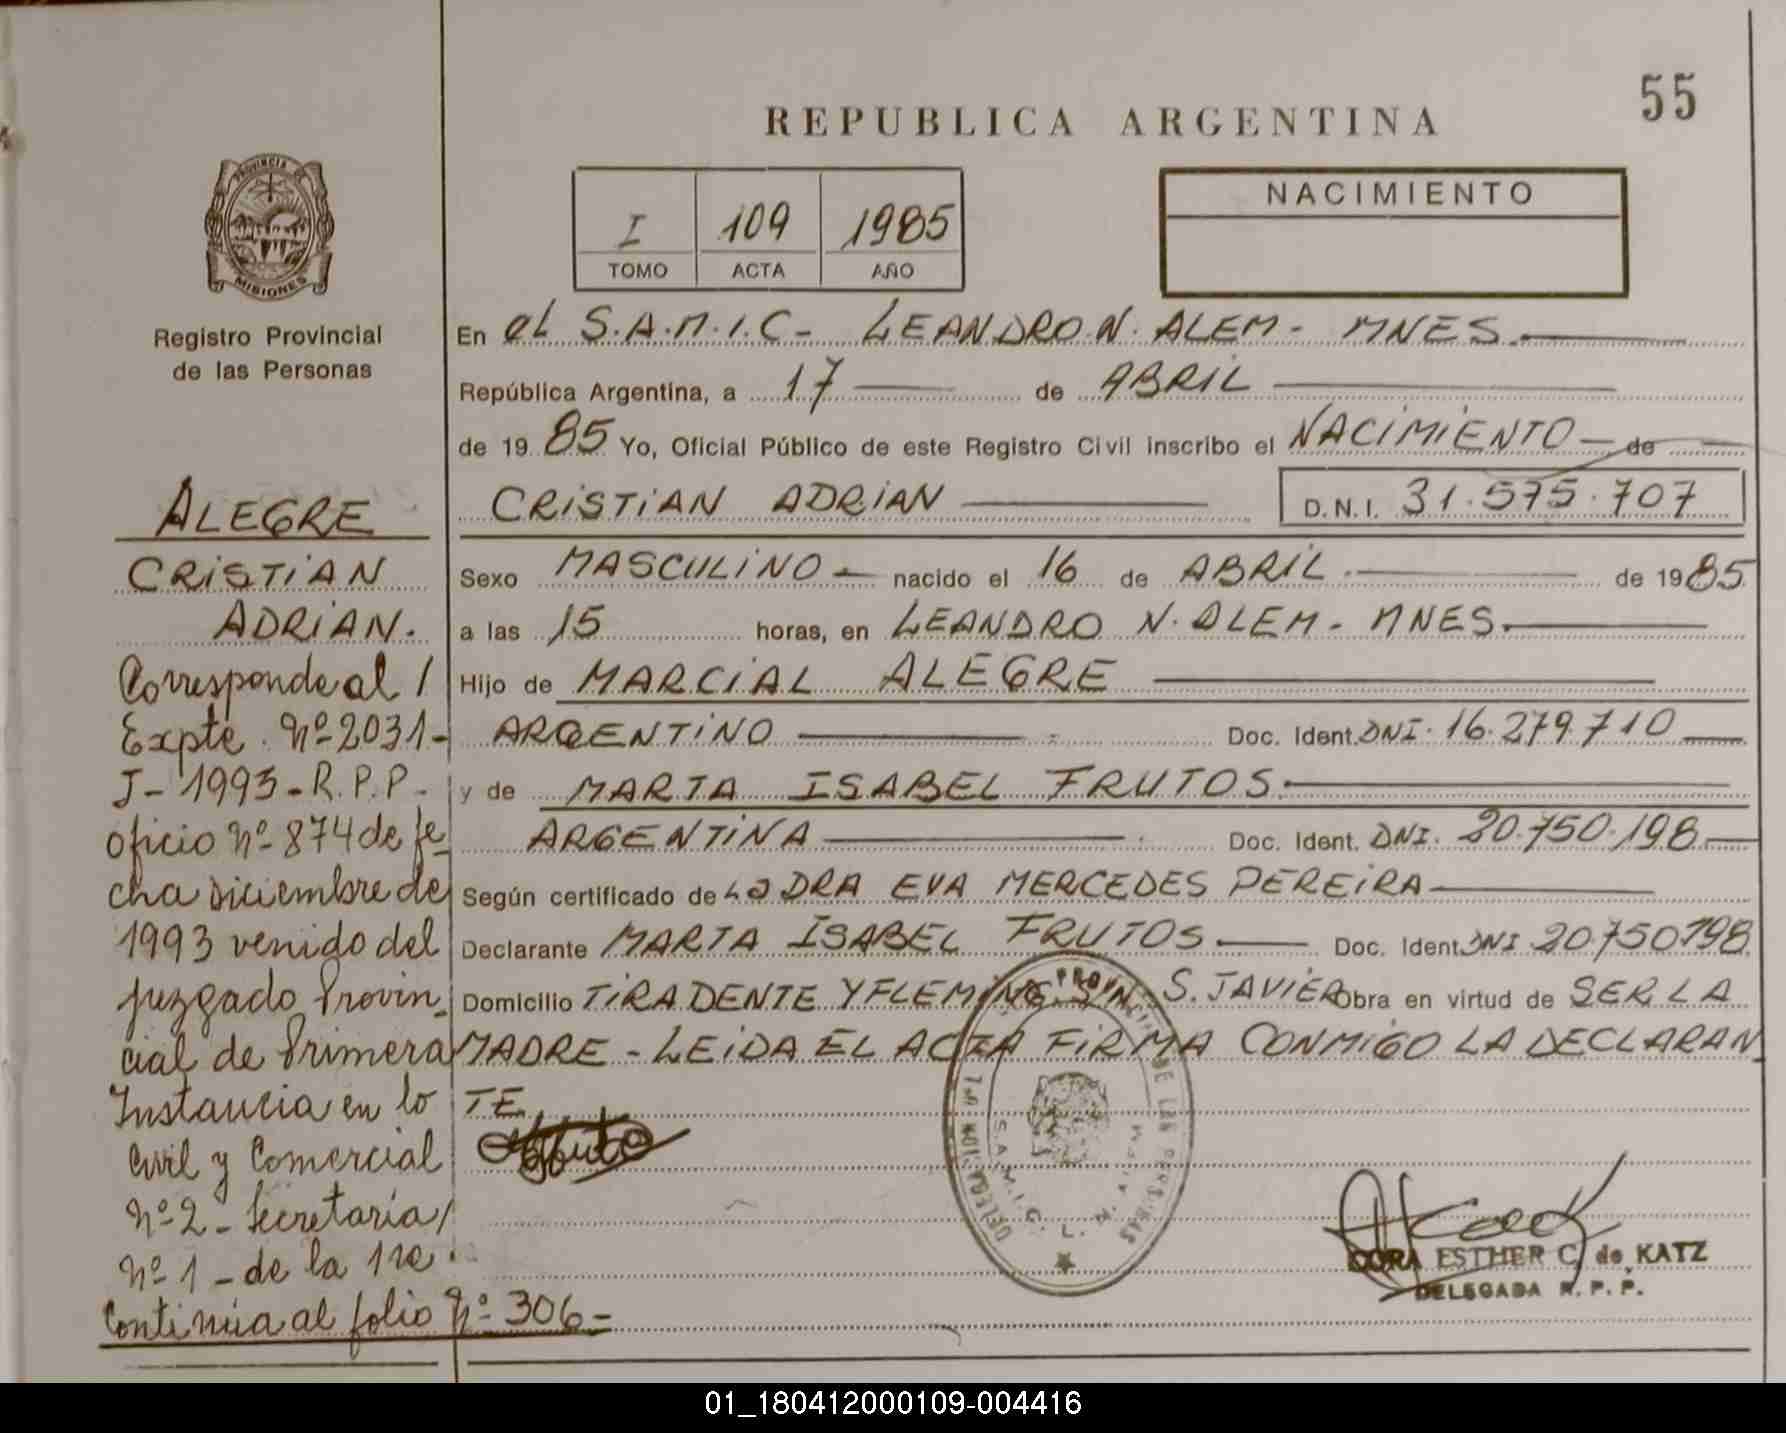 55
REPUBLICA ARGENTINA
PROVINCIA DE
MISIONES
Registro Provincial
de las Personas
I 109 1985
TOMO ACTA AÑO
NACIMIENTO
En el S.A.M.I.C- LEANDRO.N. ALEM- MNES.
República Argentina, a 17 de ABRIL
de 19 85 Yo, Oficial Público de este Registro Civil inscribo el NACIMIENTO de
CRISTIAN ADRIAN D.N.I. 31.575.707
Sexo MASCULINO nacido el 16 de ABRIL de 1985
a las 15 horas, en LEANDRO N. ALEM- MNES.
Hijo de MARCIAL ALEGRE
ARGENTINO Doc. Ident. DNI. 16.279.710
y de MARTA ISABEL FRUTOS.
ARGENTINA Doc. Ident. DNI. 20.750.198
Según certificado de La DRA EVA MERCEDES PEREIRA
Declarante MARTA ISABEL FRUTOS. Doc. Ident DNI 20.750198.
Domicilio TIRADENTE Y FLEMING S. JAVIER Obra en virtud de SER LA
MADRE - LEIDA EL ACTA FIRMA CONMIGO LA DECLARAN
TE
ALEGRE
CRISTIAN
ADRIAN.
Corresponde al /
Expte. Nº 2031-
J- 1993-R.P.P-
oficio Nº 874 de fe-
cha Diciembre de
1993 venido del
juzgado Provin-
cial de Primera
Instancia en lo
Civil y Comercial
Nº 2- Secretaría/
Nº 1- de la 1ra.
Continúa al folio Nº 306-
S.A.M.I.C. L.N.
CORA ESTHER C. de KATZ
DELEGADA R.P.P.
01_180412000109-004416